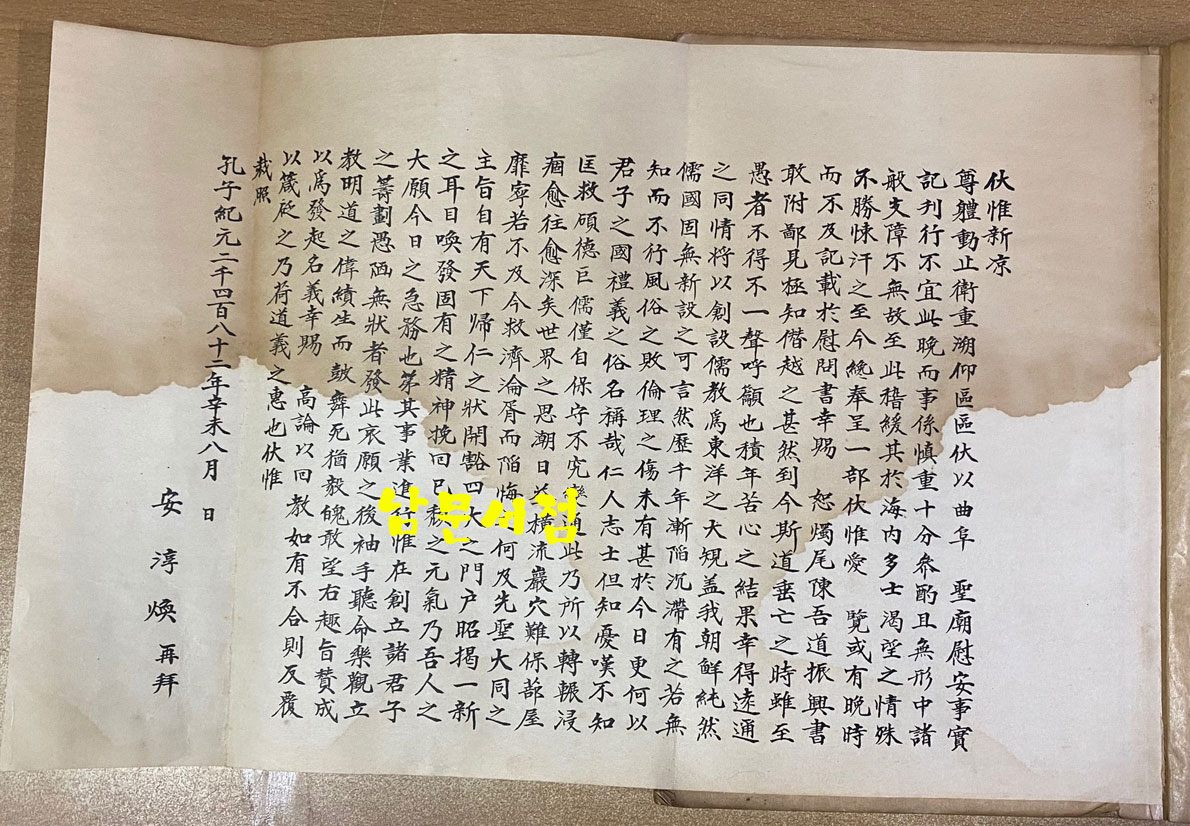 伏惟新凉
尊體動止衛重溯仰區區伏以曲阜 聖廟慰安事實
記刋行不宜此晩而事係慎重十分叅酌且無形中諸
般支障不無故至此稽緩其於海内多士渴望之情殊
不勝悚汗之至今纔奉呈一部伏惟愛 覽或有晩時
而不及記載於慰問書幸賜 恕燭尾陳吾道振興書
敢附鄙見極知僭越之甚然到今斯道垂亡之時雖至
愚者不得不一聲呼籲也積年苦心之結果幸得遠通
之同情將以創設儒教爲東洋之大規盖我朝鮮純然
儒國固無新設之可言然歷千年漸陷沉滯有之若無
知而不行風俗之敗倫理之傷未有甚於今日更何以
君子之國禮義之俗名稱哉仁人志士但知憂嘆不知
匡救碩德巨儒僅自保守不究變通此乃所以轉輾浸
痼愈往愈深矣世界之思潮日益橫流巖穴難保蔀屋
靡寧若不及今救濟淪胥而陷悔何及先聖大同之
主旨自有天下歸仁之狀開豁四大之門户昭揭一新
之耳目喚發固有之精神挽回已之元氣乃吾人之
大願今日之急務也第其事業進行惟在創立諸君子
之籌劃愚陋無狀者發此哀願之後袖手聽命樂觀立
教明道之偉績生而鼓舞死猶毅魄敢望右趣旨賛成
以爲發起名義幸賜 高論以回 教如有不合則反覆
以箴砭之乃荷道義之惠也伏惟
裁照
孔子紀元二千四百八十二年辛未八月 日
安淳煥再拜
남문서점